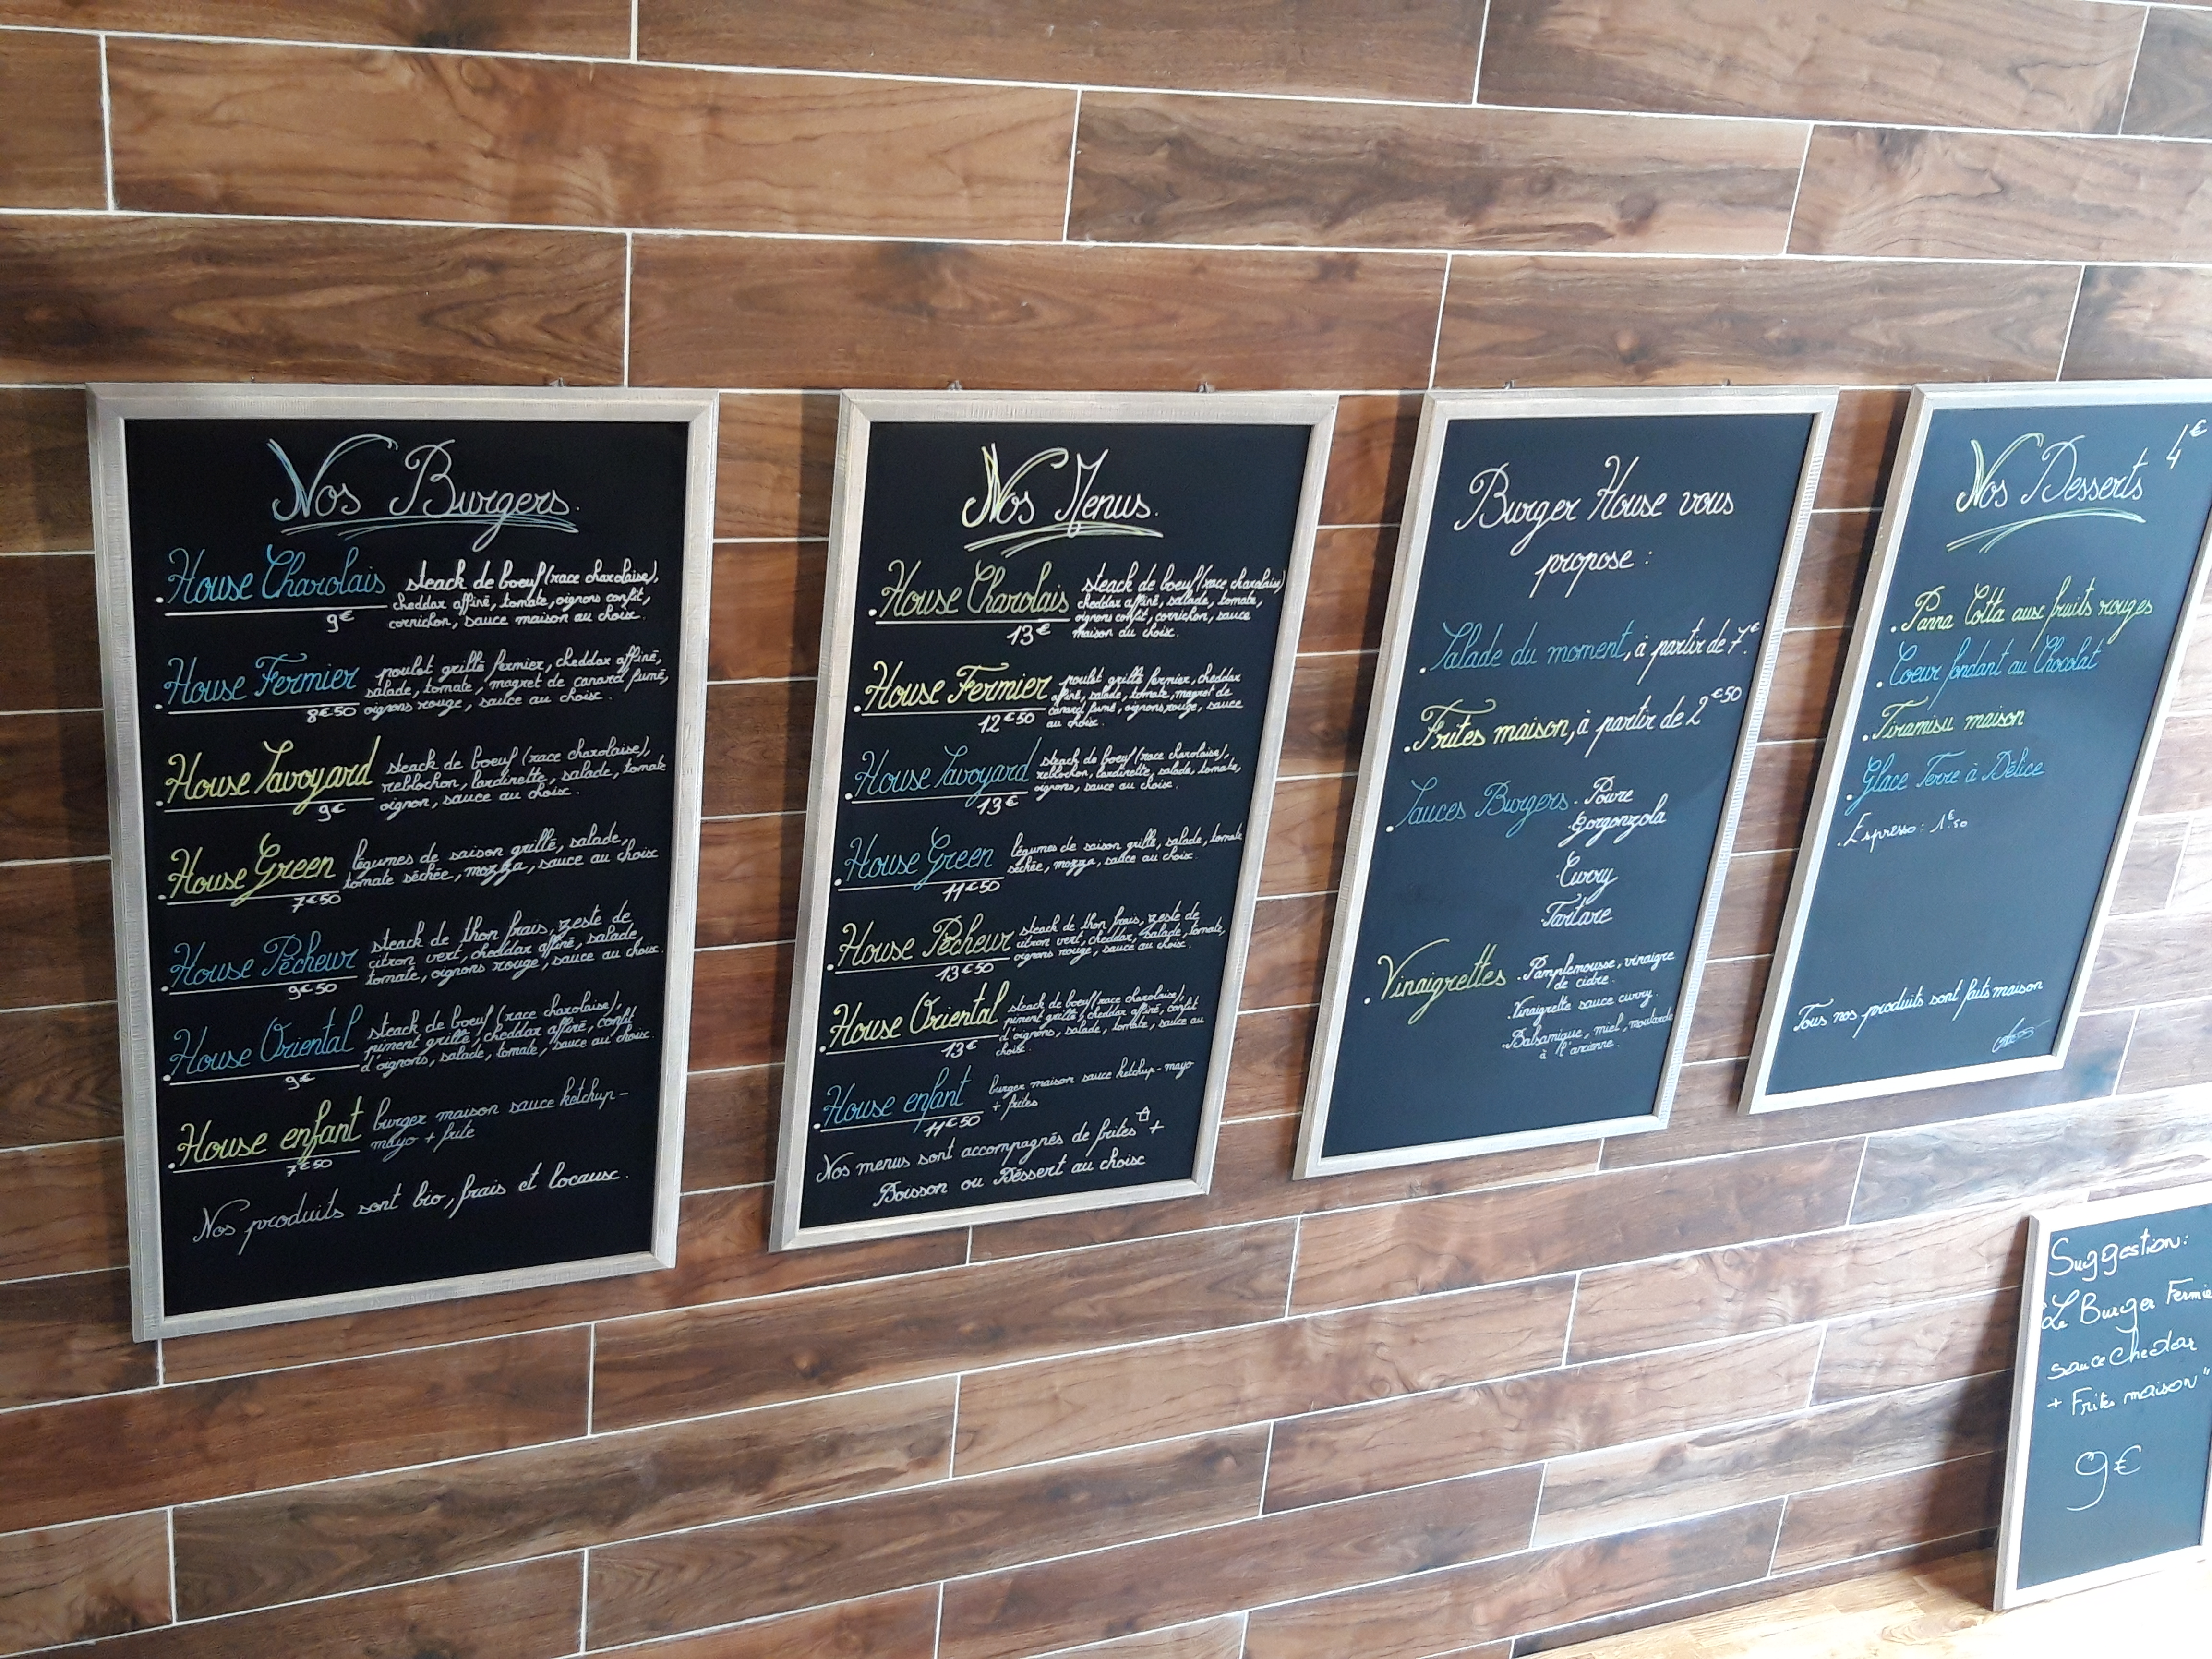 Nos Burgers.
. House Charolais steack de boeuf (race charolaise),
cheddar affiné, tomate, oignons confit,
9€ cornichon, sauce maison au choix.
. House Fermier poulet grillé fermier, cheddar affiné,
salade, tomate, magret de canard fumé,
8€50 oignons rouge, sauce au choix.
. House Savoyard steack de boeuf (race charolaise),
reblochon, lardinette, salade, tomate
9€ oignon, sauce au choix.
. House Green légumes de saison grillé, salade,
tomate séchée, mozza, sauce au choix
7€50
. House Pêcheur steack de thon frais, zeste de
citron vert, cheddar affiné, salade,
9€50 tomate, oignons rouge, sauce au choix.
. House Oriental steack de boeuf (race charolaise),
piment grillé, cheddar affiné, confit
9€ d'oignons, salade, tomate, sauce au choix.
. House enfant burger maison sauce ketchup -
mayo + frite
7€50
Nos produits sont bio, frais et locaux.
Nos Menus.
. House Charolais steack de boeuf (race charolaise)
cheddar affiné, salade, tomate,
oignons confit, cornichon, sauce
13€ maison du choix.
. House Fermier poulet grillé fermier, cheddar
affiné, salade, tomate, magret de
canard fumé, oignons rouge, sauce
12€50 au choix.
. House Savoyard steack de boeuf (race charolaise),
reblochon, lardinette, salade, tomate,
13€ oignons, sauce au choix.
. House Green légumes de saison grillé, salade, tomate
séchée, mozza, sauce au choix.
11€50
. House Pêcheur steack de thon frais, zeste de
citron vert, cheddar, salade, tomate,
13€50 oignons rouge, sauce au choix.
. House Oriental steack de boeuf (race charolaise),
piment grillé, cheddar affiné, confit
d'oignons, salade, tomate, sauce au
13€ choix.
. House enfant burger maison sauce ketchup - mayo
+ frites
11€50
Nos menus sont accompagnés de frites +
Boisson ou Déssert au choix
Burger House vous
propose :
. Salade du moment, à partir de 7€.
. Frites maison, à partir de 2€50
. Sauces Burgers . Poivre
. Gorgonzola
. Curry
. Tartare
. Vinaigrettes . Pamplemousse, vinaigre
de cidre.
. Vinaigrette sauce curry.
. Balsamique, miel, moutarde
à l'ancienne.
Nos Desserts 4€
. Panna Cotta aux fruits rouges
. Coeur fondant au Chocolat
. Tiramisu maison
. Glace Terre à Délice
. Espresso : 1€50
Tous nos produits sont faits maison
Suggestion:
"Le Burger Fermie
sauce Chedar
+ Frites maison"
9€